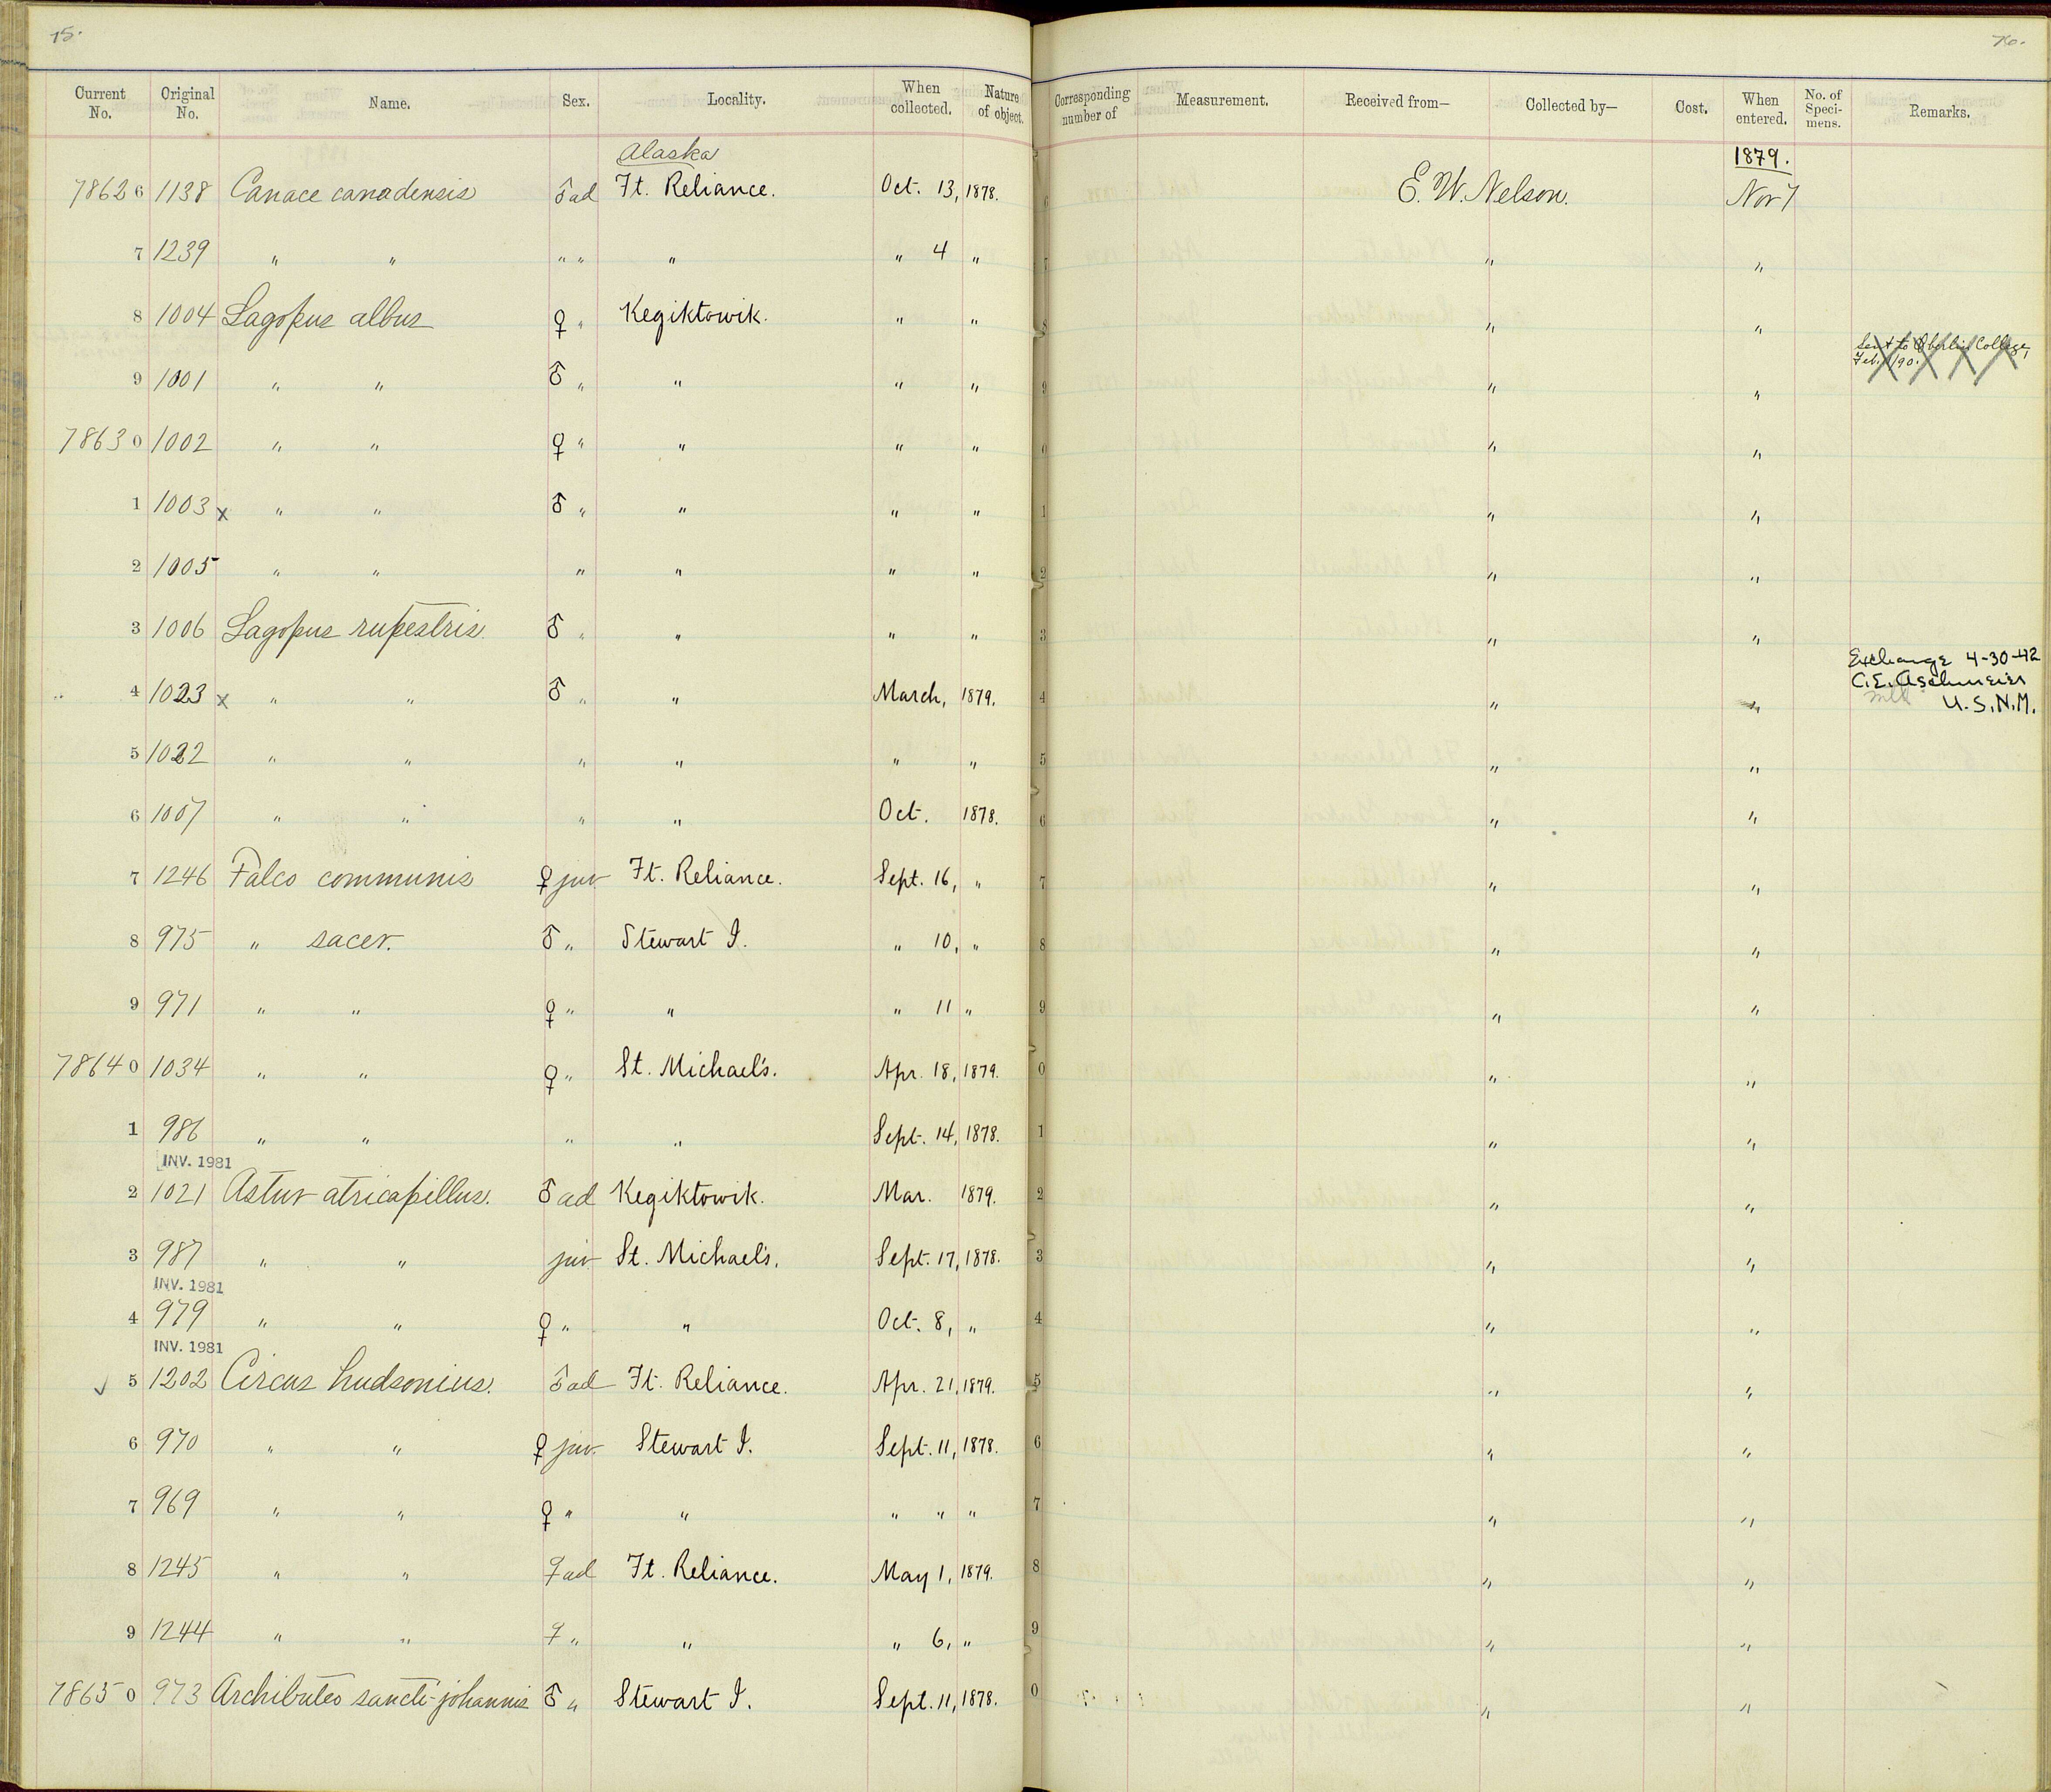 75.
76.
Current No. Original No. Name. Sex. Locality. When collected. Nature of object. Corresponding number of Measurement. Received from— Collected by— Cost. When entered. No. of Speci-mens. Remarks.
Alaska 1879.
7862 6 1138 Canace canadensis ♂ ad Ft. Reliance. Oct. 13, 1878. 6 E. W. Nelson. Nov 7
7 1239 " " " " " " 4 " 7 " "
8 1004 Lagopus albus ♀ " Kegiktowik. " " 8 " "
Sent to Oberlin College,
Feb. 190
9 1001 " " ♂ " " " " 9 " "
7863 0 1002 " " ♀ " " " " 0 " "
1 1003 x " " ♂ " " " " 1 " "
2 1005 " " " " " " 2 " "
3 1006 Lagopus rupestris ♂ " " " " 3 " "
4 1023 x " " ♂ " " March, 1879. 4 " " Exchange 4-30-42
C. E. Aschmeier
U.S.N.M.
5 1022 " " " " " " 5 " "
6 1007 " " " " Oct. 1878. 6 " "
7 1246 Falco communis ♀ juv Ft. Reliance. Sept. 16, " 7 " "
8 975 " sacer. ♂ " Stewart I. " 10, " 8 " "
9 971 " " ♀ " " " 11 " 9 " "
7864 0 1034 " " ♀ " St. Michael's. Apr. 18, 1879. 0 " "
1 986 " " " " Sept. 14, 1878. 1 " "
INV. 1981
2 1021 Astur atricapillus. ♂ ad Kegiktowik. Mar. 1879. 2 " "
3 987 " " juv St. Michael's. Sept. 17, 1878. 3 " "
INV. 1981
4 979 " " ♀ " " Oct. 8, " 4 " "
INV. 1981
5 1202 Circus hudsonius. ♂ ad Ft. Reliance. Apr. 21, 1879. 5 " "
6 970 " " ♀ juv. Stewart I. Sept. 11, 1878. 6 " "
7 969 " " ♀ " " " " " 7 " "
8 1245 " " ♀ ad Ft. Reliance. May 1, 1879. 8 " "
9 1244 " " ♀ " " " 6, " 9 " "
7865 0 973 Archibuteo sancti-johannis ♂ " Stewart I. Sept. 11, 1878. 0 " "